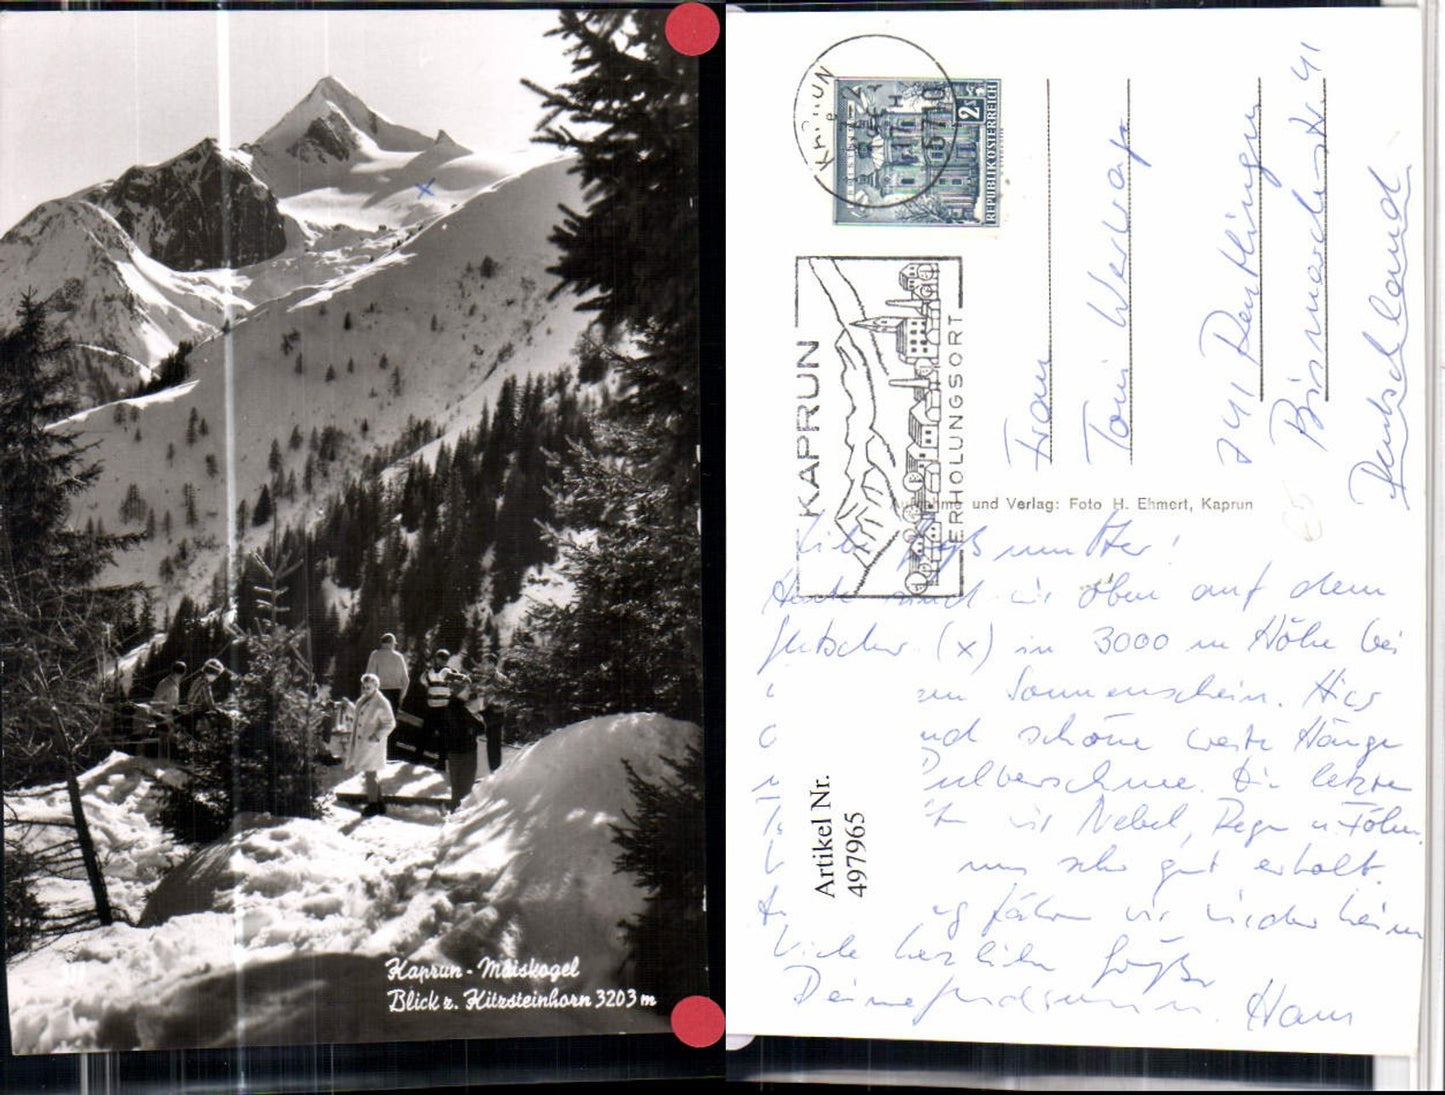 Kaprun - Maiskogel
Blick z. Kitzsteinhorn 3203 m
KAPRUN
5710
2 S
REPUBLIK ÖSTERREICH
KAPRUN
ERHOLUNGSORT
Frau
Toni
741 Reutlingen
Bismarckstr. 41
Deutschland
Aufnahme und Verlag: Foto H. Ehmert, Kaprun
Liebe Großmutter!
Heute sind wir oben auf dem
Gletscher (x) in 3000 m Höhe bei
Sonnenschein. Hier
und schöne weite Hänge
Pulverschnee. Die letzten
wir Nebel, Regen u. Föhn
uns sehr gut erholt.
fahren wir wieder heim
Viele herzliche Grüße
Hans
Artikel Nr.
497965